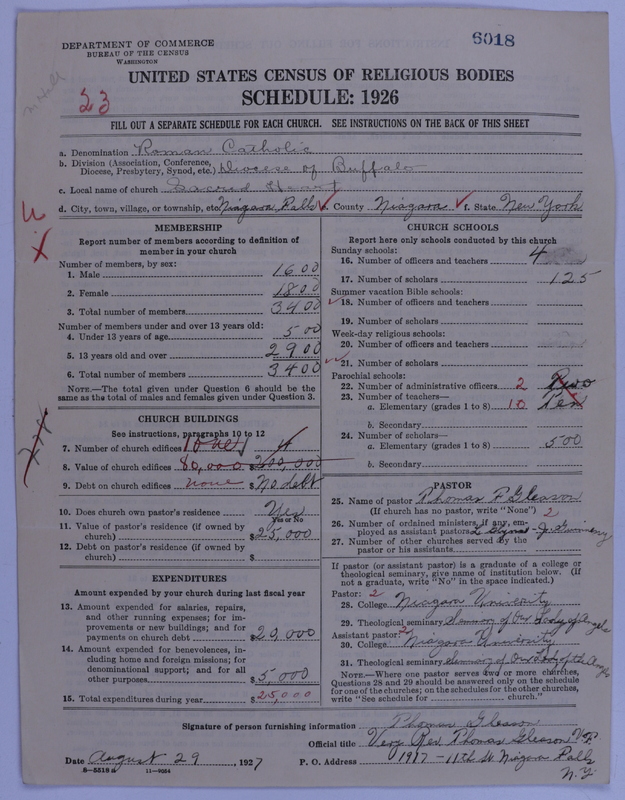 6018
DEPARTMENT OF COMMERCE
BUREAU OF THE CENSUS
WASHINGTON
UNITED STATES CENSUS OF RELIGIOUS BODIES
SCHEDULE: 1926
23
FILL OUT A SEPARATE SCHEDULE FOR EACH CHURCH. SEE INSTRUCTIONS ON THE BACK OF THIS SHEET
a. Denomination Roman Catholic
b. Division (Association, Conference, Diocese, Presbytery, Synod, etc.) Diocese of Buffalo
c. Local name of church Sacred Heart
d. City, town, village, or township, etc. Niagara Falls e. County Niagara f. State New York
MEMBERSHIP
Report number of members according to definition of
member in your church
Number of members, by sex:
1. Male 1600
2. Female 1800
3. Total number of members 3400
Number of members under and over 13 years old:
4. Under 13 years of age 500
5. 13 years old and over 2900
6. Total number of members 3400
NOTE.—The total given under Question 6 should be the
same as the total of males and females given under Question 3.
CHURCH BUILDINGS
See instructions, paragraphs 10 to 12
7. Number of church edifices 1 one 4
8. Value of church edifices 80,000 $200,000
9. Debt on church edifices none $No debt
10. Does church own pastor's residence Yes
Yes or No
11. Value of pastor's residence (if owned by
church) $25,000
12. Debt on pastor's residence (if owned by
church) $
EXPENDITURES
Amount expended by your church during last fiscal year
13. Amount expended for salaries, repairs,
and other running expenses; for im-
provements or new buildings; and for
payments on church debt $20,000
14. Amount expended for benevolences, in-
cluding home and foreign missions; for
denominational support; and for all
other purposes $5,000
15. Total expenditures during year $25,000
CHURCH SCHOOLS
Report here only schools conducted by this church
Sunday schools:
16. Number of officers and teachers 4
17. Number of scholars 125
Summer vacation Bible schools:
18. Number of officers and teachers
19. Number of scholars
Week-day religious schools:
20. Number of officers and teachers
21. Number of scholars
Parochial schools:
22. Number of administrative officers 2 Two
23. Number of teachers—
a. Elementary (grades 1 to 8) 10 Ten
b. Secondary
24. Number of scholars—
a. Elementary (grades 1 to 8) 500
b. Secondary
PASTOR
25. Name of pastor Thomas F Gleason
(If church has no pastor, write "None") 2
26. Number of ordained ministers, if any, em-
ployed as assistant pastors
27. Number of other churches served by the
pastor or his assistants
If pastor (or assistant pastor) is a graduate of a college or
theological seminary, give name of institution below. (If
not a graduate, write "No" in the space indicated.)
Pastor: 2
28. College Niagara University
29. Theological seminary Seminary of Our Lady of Angels
Assistant pastor: 2
30. College Niagara University
31. Theological seminary Seminary of Our Lady of the Angels
NOTE.—Where one pastor serves two or more churches,
Questions 28 and 29 should be answered only on the schedule
for one of the churches; on the schedules for the other churches,
write "See schedule for church."
Signature of person furnishing information Thomas Gleason
Official title Very Rev. Thomas Gleason
Date August 29, 1927 P. O. Address 1917 - 11th St. Niagara Falls
N.Y.
8—5518a 11—9064